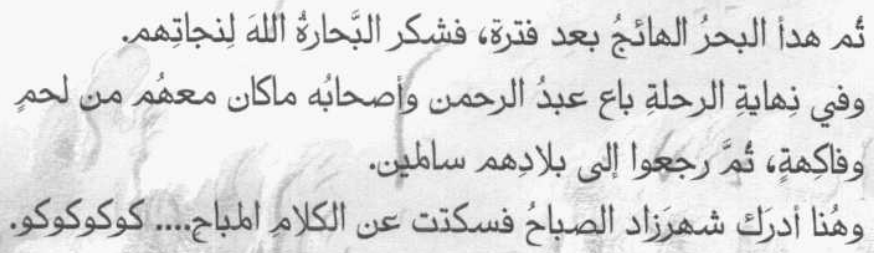 ثُم هدأ البحرُ الهائجُ بعد فترة، فشكر البَّحارةُ اللهَ لِنجاتِهم.
وفي نِهايةِ الرحلةِ باع عبدُ الرحمن وأصحابُه ماكان معهُم من لحمٍ
وفاكِهةٍ، ثُمَّ رجعوا إلى بلادِهم سالمين.
وهُنا أدرَك شهرَزاد الصباحُ فسكتت عن الكلامِ المباحِ.... كوكوكوكو.